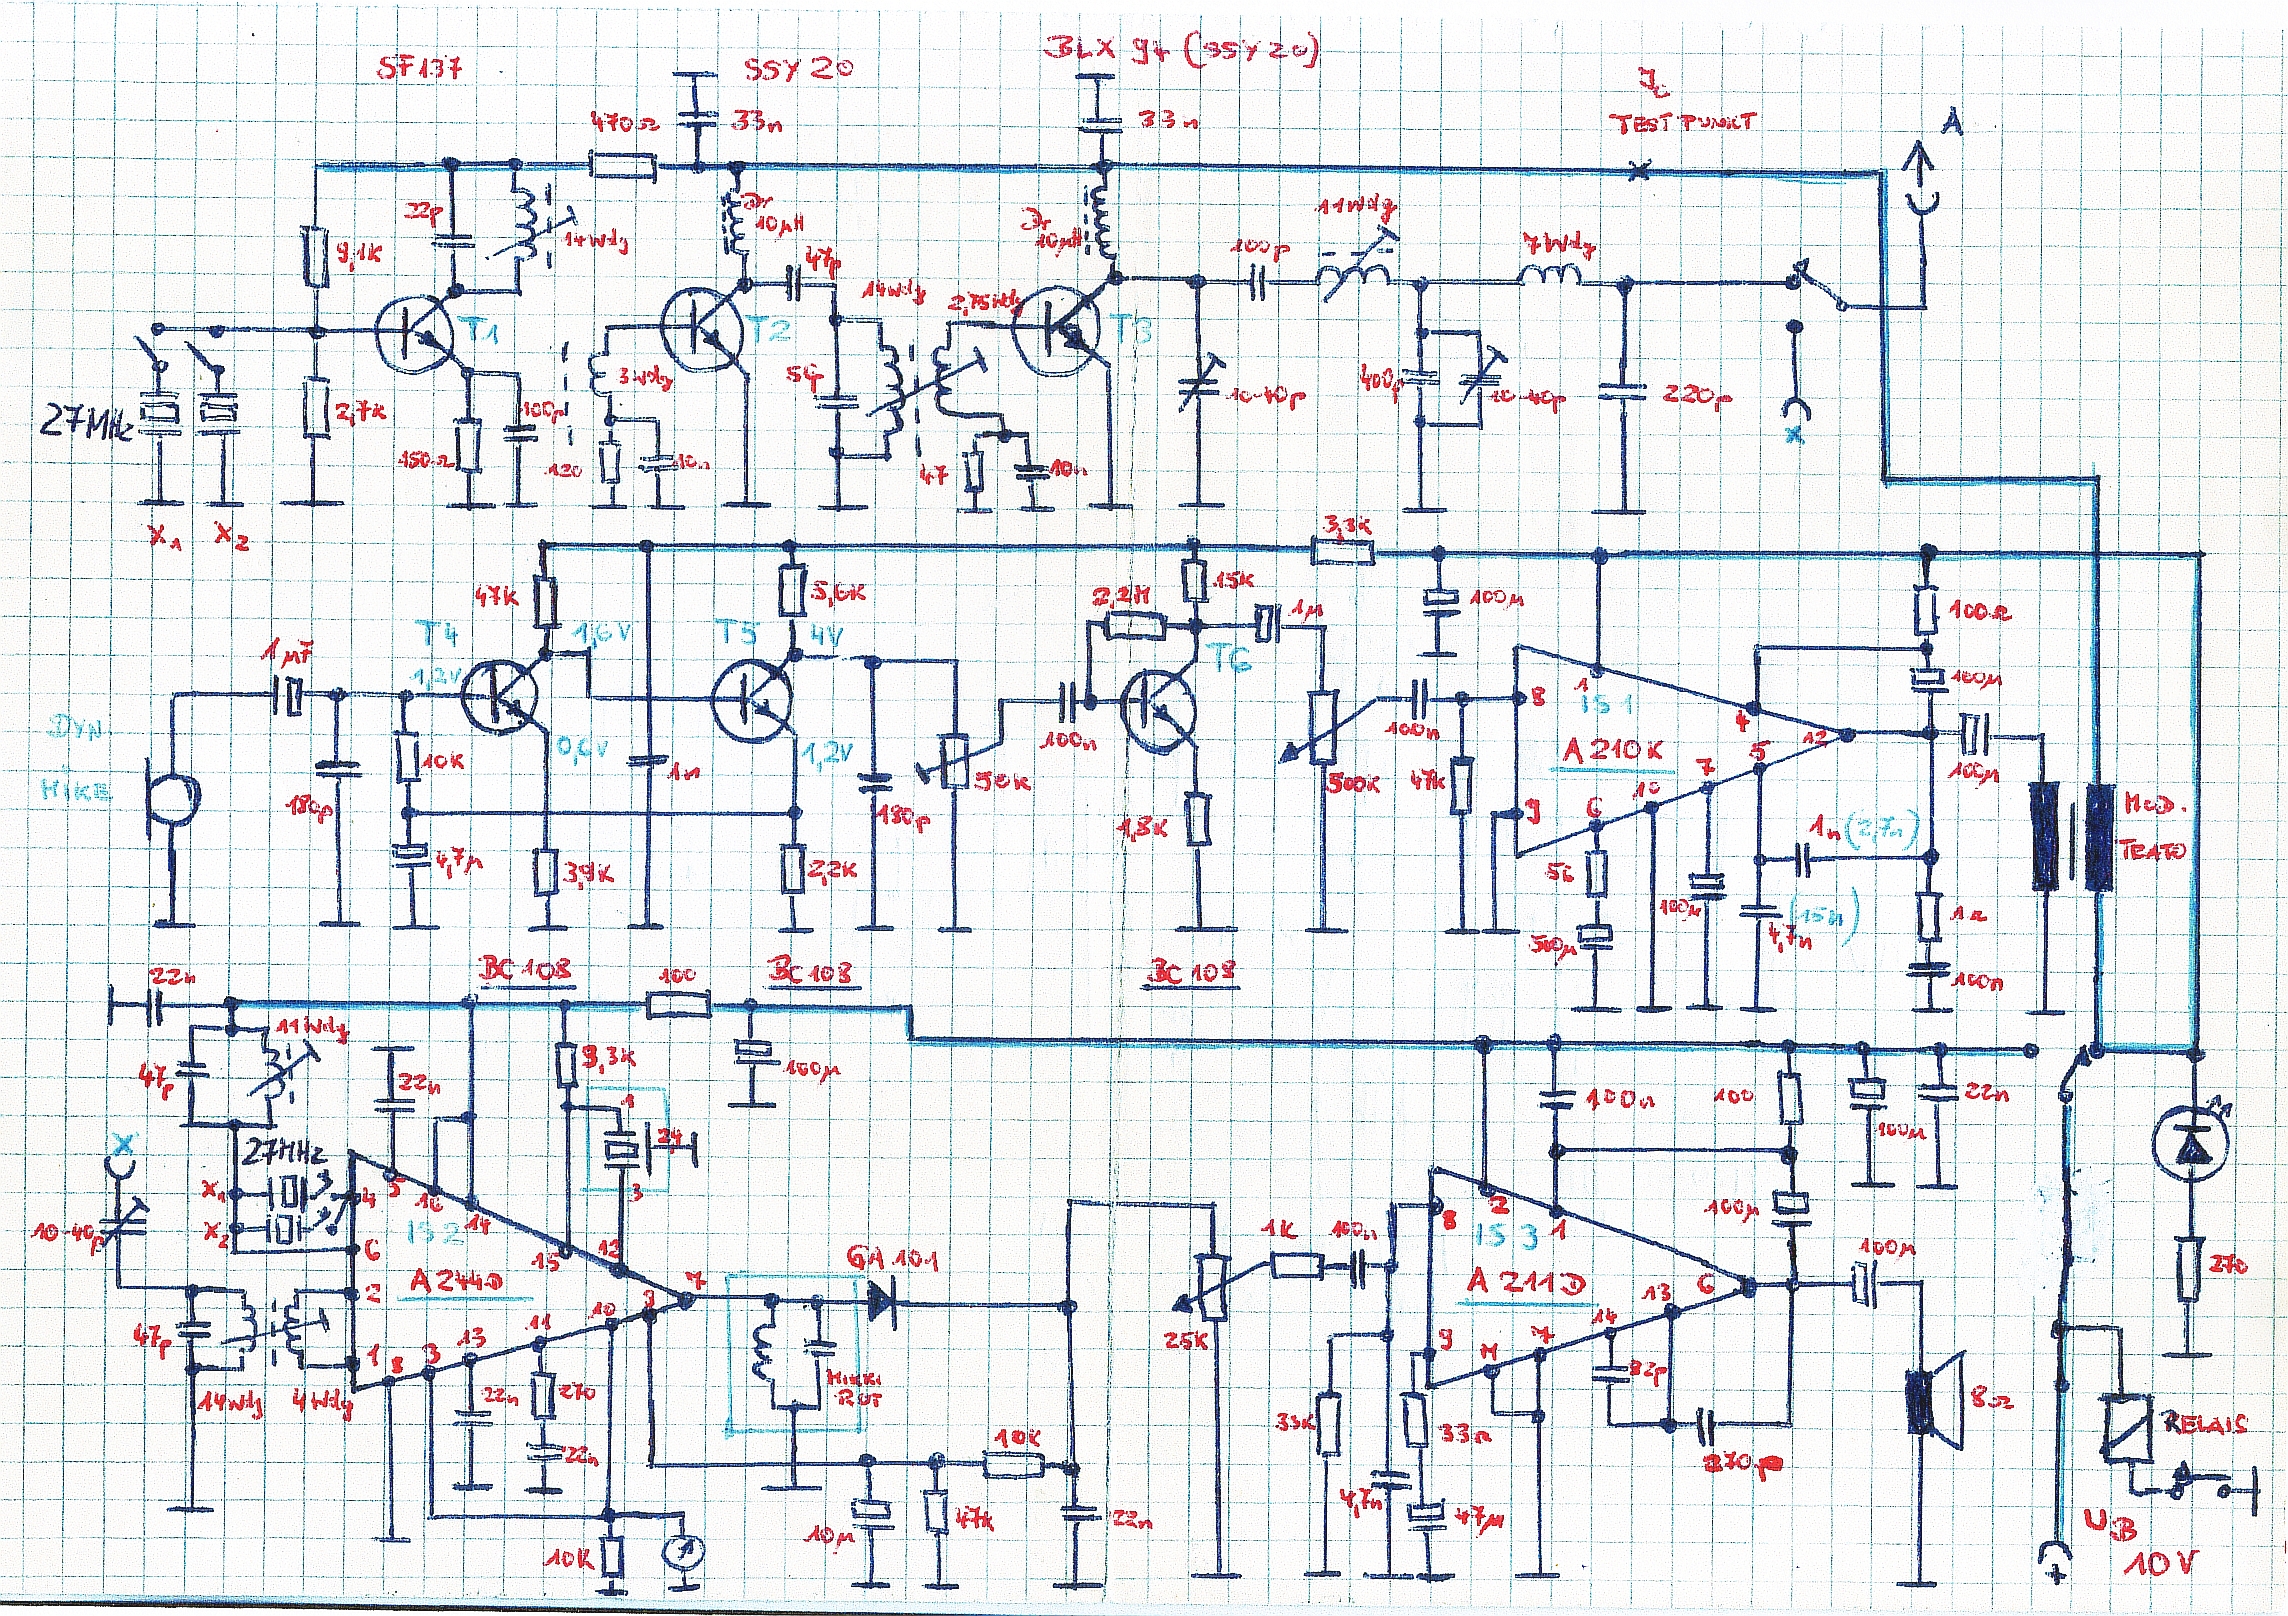 SF137
SSY20
BLX 94 (SSY20)
470Ω
33n
33n
TESTPUNKT
A
9,1K
14Wdg
Dr
10µH
47p
Dr
10µH
100p
11Wdg
7Wdg
T1
T2
T3
14Wdg
2,75Wdg
27MHz
2,7K
150Ω
100p
3Wdg
120
10n
47
10n
10-40p
400p
10-40p
220p
X
X1
X2
3,3K
47K
5,6K
15K
2,2M
1µ
100µ
100Ω
1µF
T4
1,2V
1,6V
T5
4V
T6
100µ
8
1
IS1
4
12
A210K
DYN.
MIKE
10K
0,6V
1n
1,2V
50K
100n
500K
100n
47K
5
7
10
6
9
100µ
180p
180p
4,7µ
3,9K
2,2K
1,8K
56
500µ
100µ
1n (2,7n)
4,7n
(15n)
1Ω
100n
MOD.
TRAFO
BC108
BC108
BC108
22n
100
11Wdg
47p
22n
3,3K
100µ
1
24
3
100n
100
100µ
22n
X
27MHz
X1
X2
10-40p
4
5
16
14
15
12
7
6
2
1
IS2
A244D
8
3
13
11
10
9
47p
14Wdg
4Wdg
22n
270
22n
10K
GA101
MIKKI
ROT
10K
10µ
47K
22n
25K
1K
100n
8
2
1
IS3
A211D
6
9
M
7
14
13
100µ
100µ
33K
4,7n
33Ω
47µ
82p
270p
8Ω
270
RELAIS
UB
10V
+